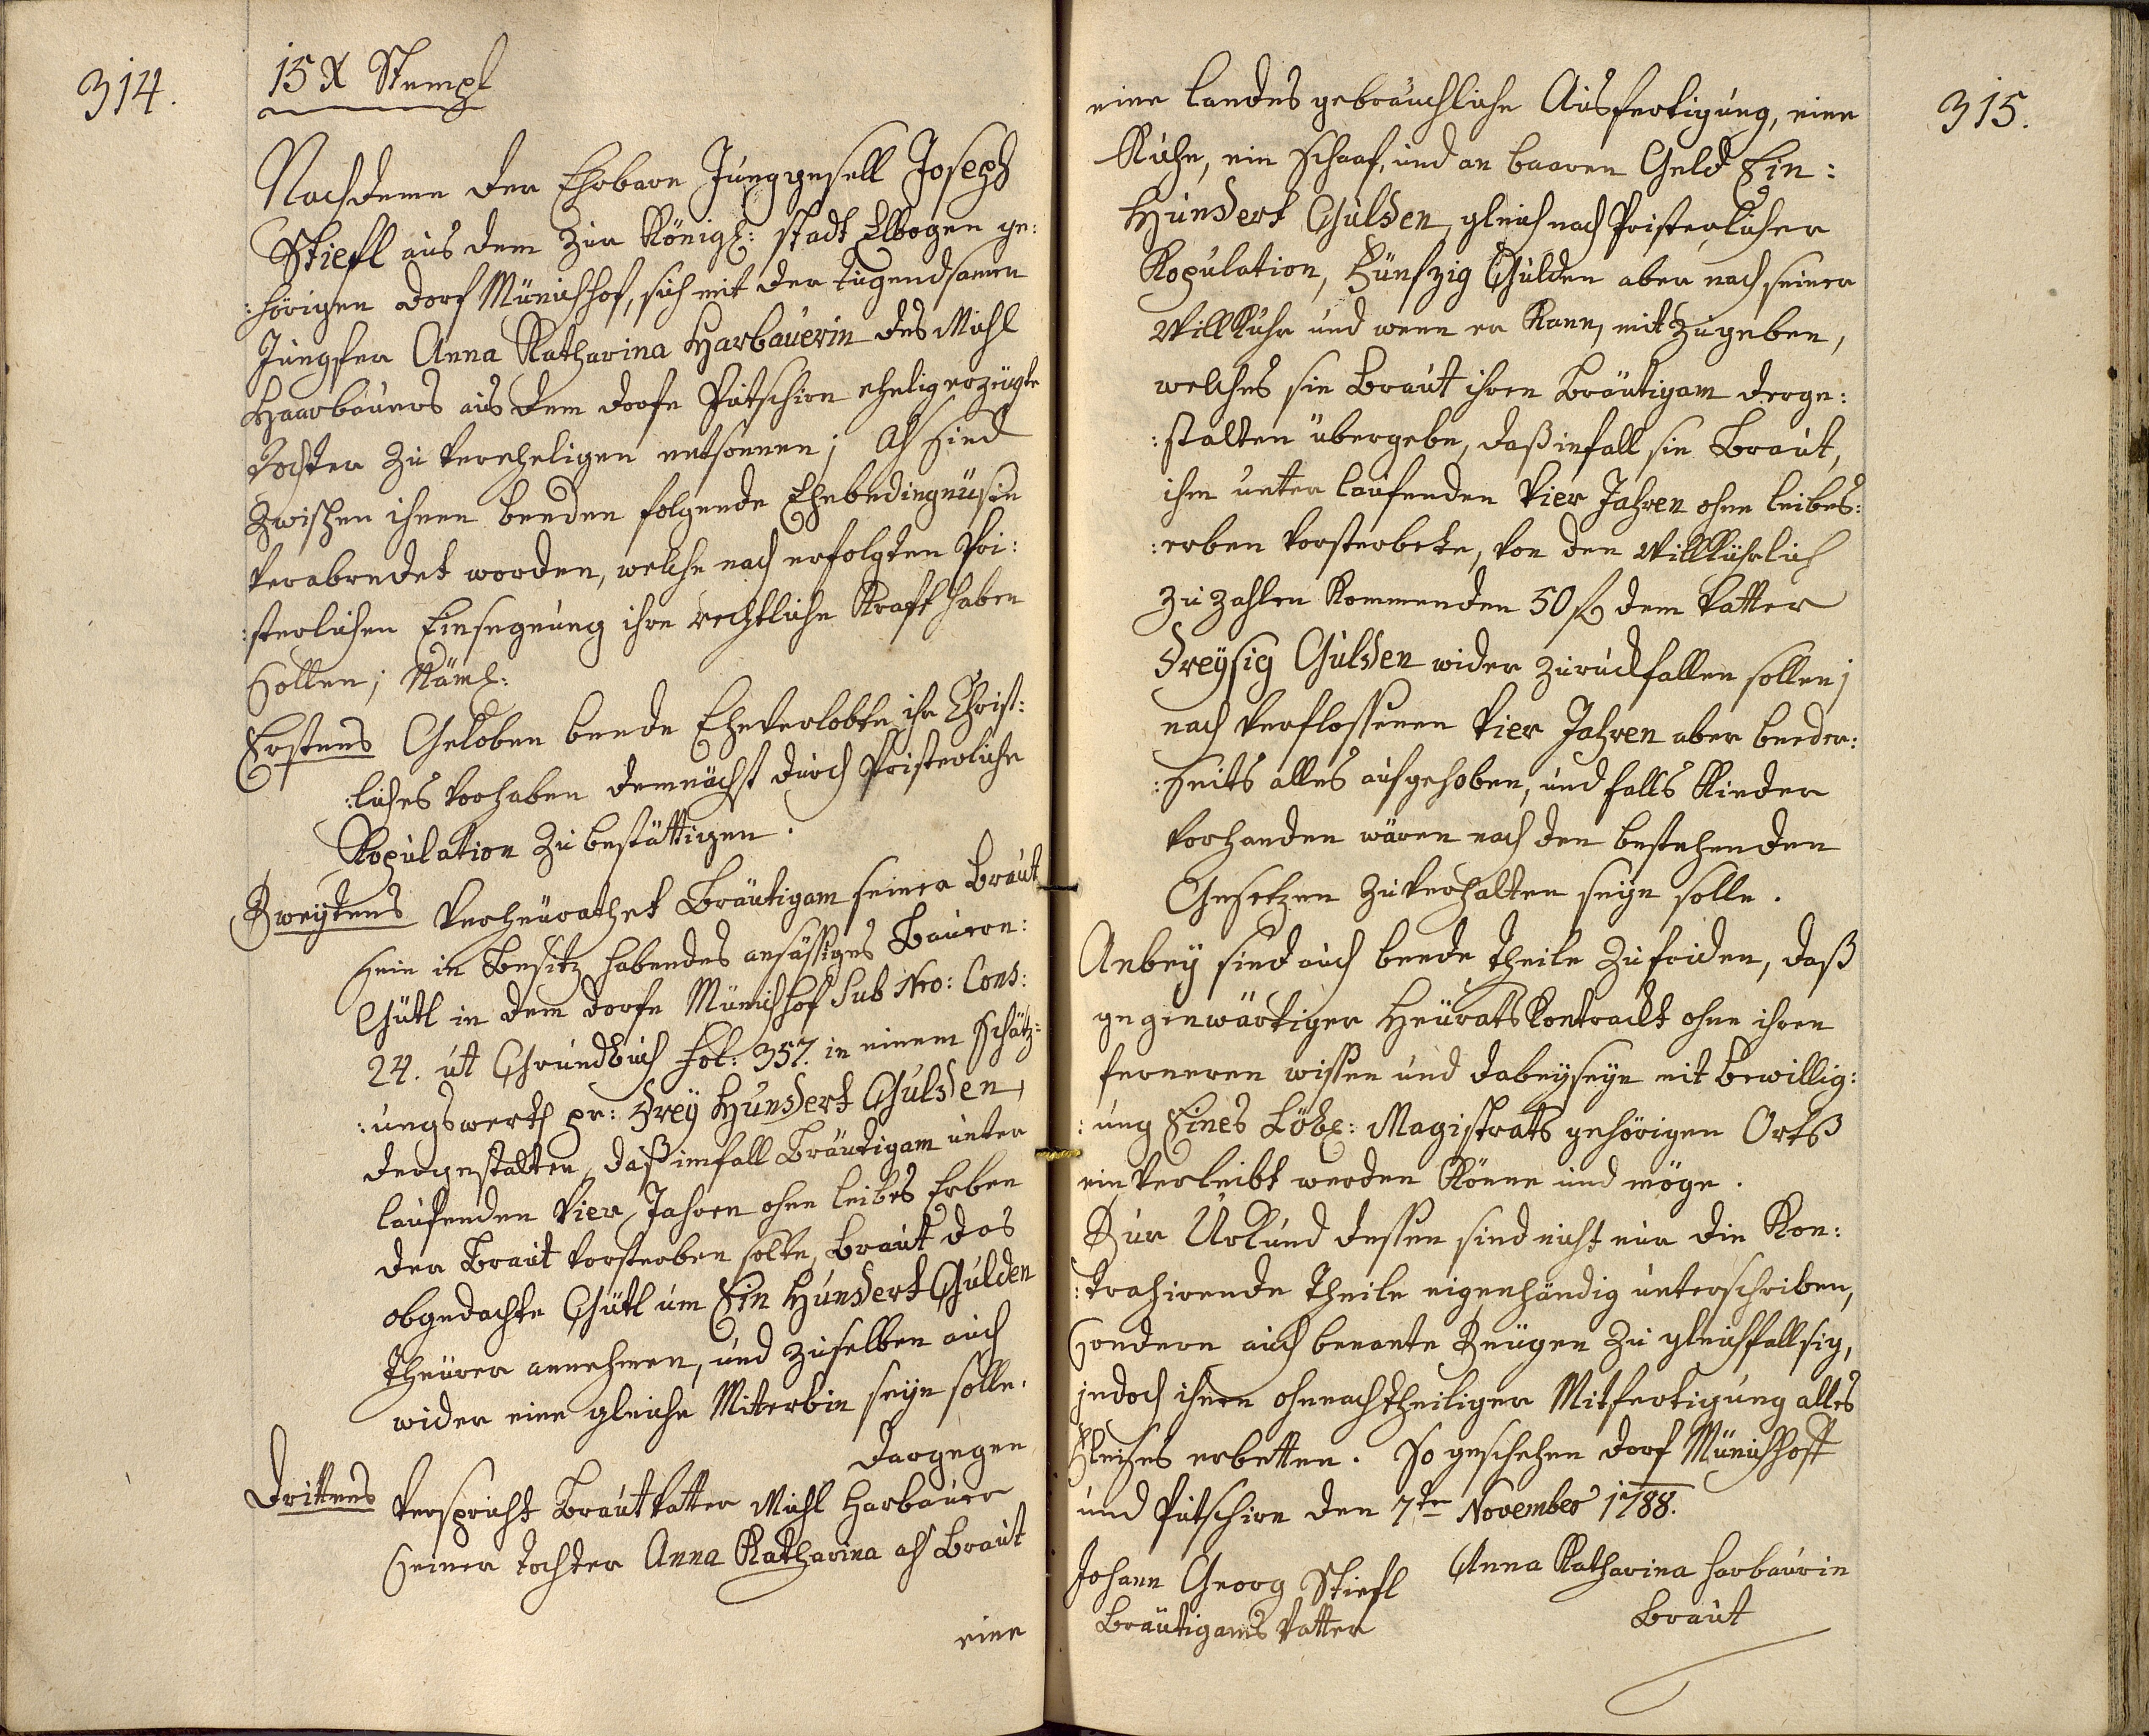 314.
15 X Stempl
Nachdeme der Ehrbare Junggesell Joseph
Stiefl aus dem zur Königl: stadt Elbogen ge:
:hörigen dorf Münichhof, sich mit der tugendsamen
Jungfer Anna Katharina Harbauerin des Michl
Haarbauers aus dem dorfe Putschirn ehelig erzeügte
tochter zu verehelichen entsonnen; als sind
zwischen ihnen beeden folgende Ehebedingnüsse
verabredet worden, welche nach erfolgten Pri:
:sterlichen Einsegnung ihre rechtliche Kraft haben
sollen; Näml:
Erstens Geloben beede Eheverlobte ihr Christ:
:liches vorhaben demnächst durch Pristerliche
Kopulation zu bestättigen.
Zweytens verheürathet Bräutigam seiner Braut
sein in Besitz habendes ansässiges Bauern:
Gütl in dem dorfe Münichhof Sub Nro: Cons:
24. ut Grundbuch fol: 357. in einem schätz:
:ungswerth pr: drey Hundert Gulden,
dergestalten, daß imfall Bräutigam unter
laufenden vier Jahren ohne leibes Erben
der Braut vorsterben solte, Braut das
obgedachte Gütl um Ein Hundert Gulden
theürer annehmen, und zuselben auch
wider eine gleiche Miterbin seyn solle.
dargegen
drittens verspricht Brautvatter Michl Harbauer
seiner tochter Anna Katharina als Braut
eine
315.
eine landes gebräuchliche Ausfertigung, eine
Kuhe, ein schaaf, und an baaren Geld Ein:
Hundert Gulden, gleich nach Pristerlicher
Kopulation, Fünfzig Gulden aber nach seiner
Willkuhr und wenn er kann, mitzugeben,
welches sie Braut ihren Bräutigam derge:
:stalten übergebe, daß infall sie Braut,
ihm unter laufenden vier Jahren ohne leibes:
:erben vorsterbete, von den willkührlich
zu zahlen kommenden 50 f dem vatter
dreysig Gulden wider zurückfallen sollen;
nach verflossenen vier Jahren aber beeder:
:seits alles aufgehoben, und falls Kinder
vorhanden wären nach den bestehenden
Gesetzen zuverhalten seyn solle.
Anbey sind auch beede theile zufriden, daß
gegenwärtiger Heürats Kontrackt ohne ihren
ferneren wissen und dabeyseyn mit bewillig:
:ung Eines Löbl: Magistrats gehörigen Ortß
einverleibt werden könne und möge.
Zur Urkund dessen sind nicht nur die Kon:
:trahirende theile eigenhändig unterschriben,
sondern auch benante Zeügen zu gleichfallsig,
jedoch ihnen ohnnachtheiliger Mitfertigung alles
Fleißes erbetten. So geschehen dorf Münichhoff
und Putschirn den 7te November 1788.
Johann Georg Stiefl
Bräutigams Vatter
Anna Katharina Harbaurin
Braut